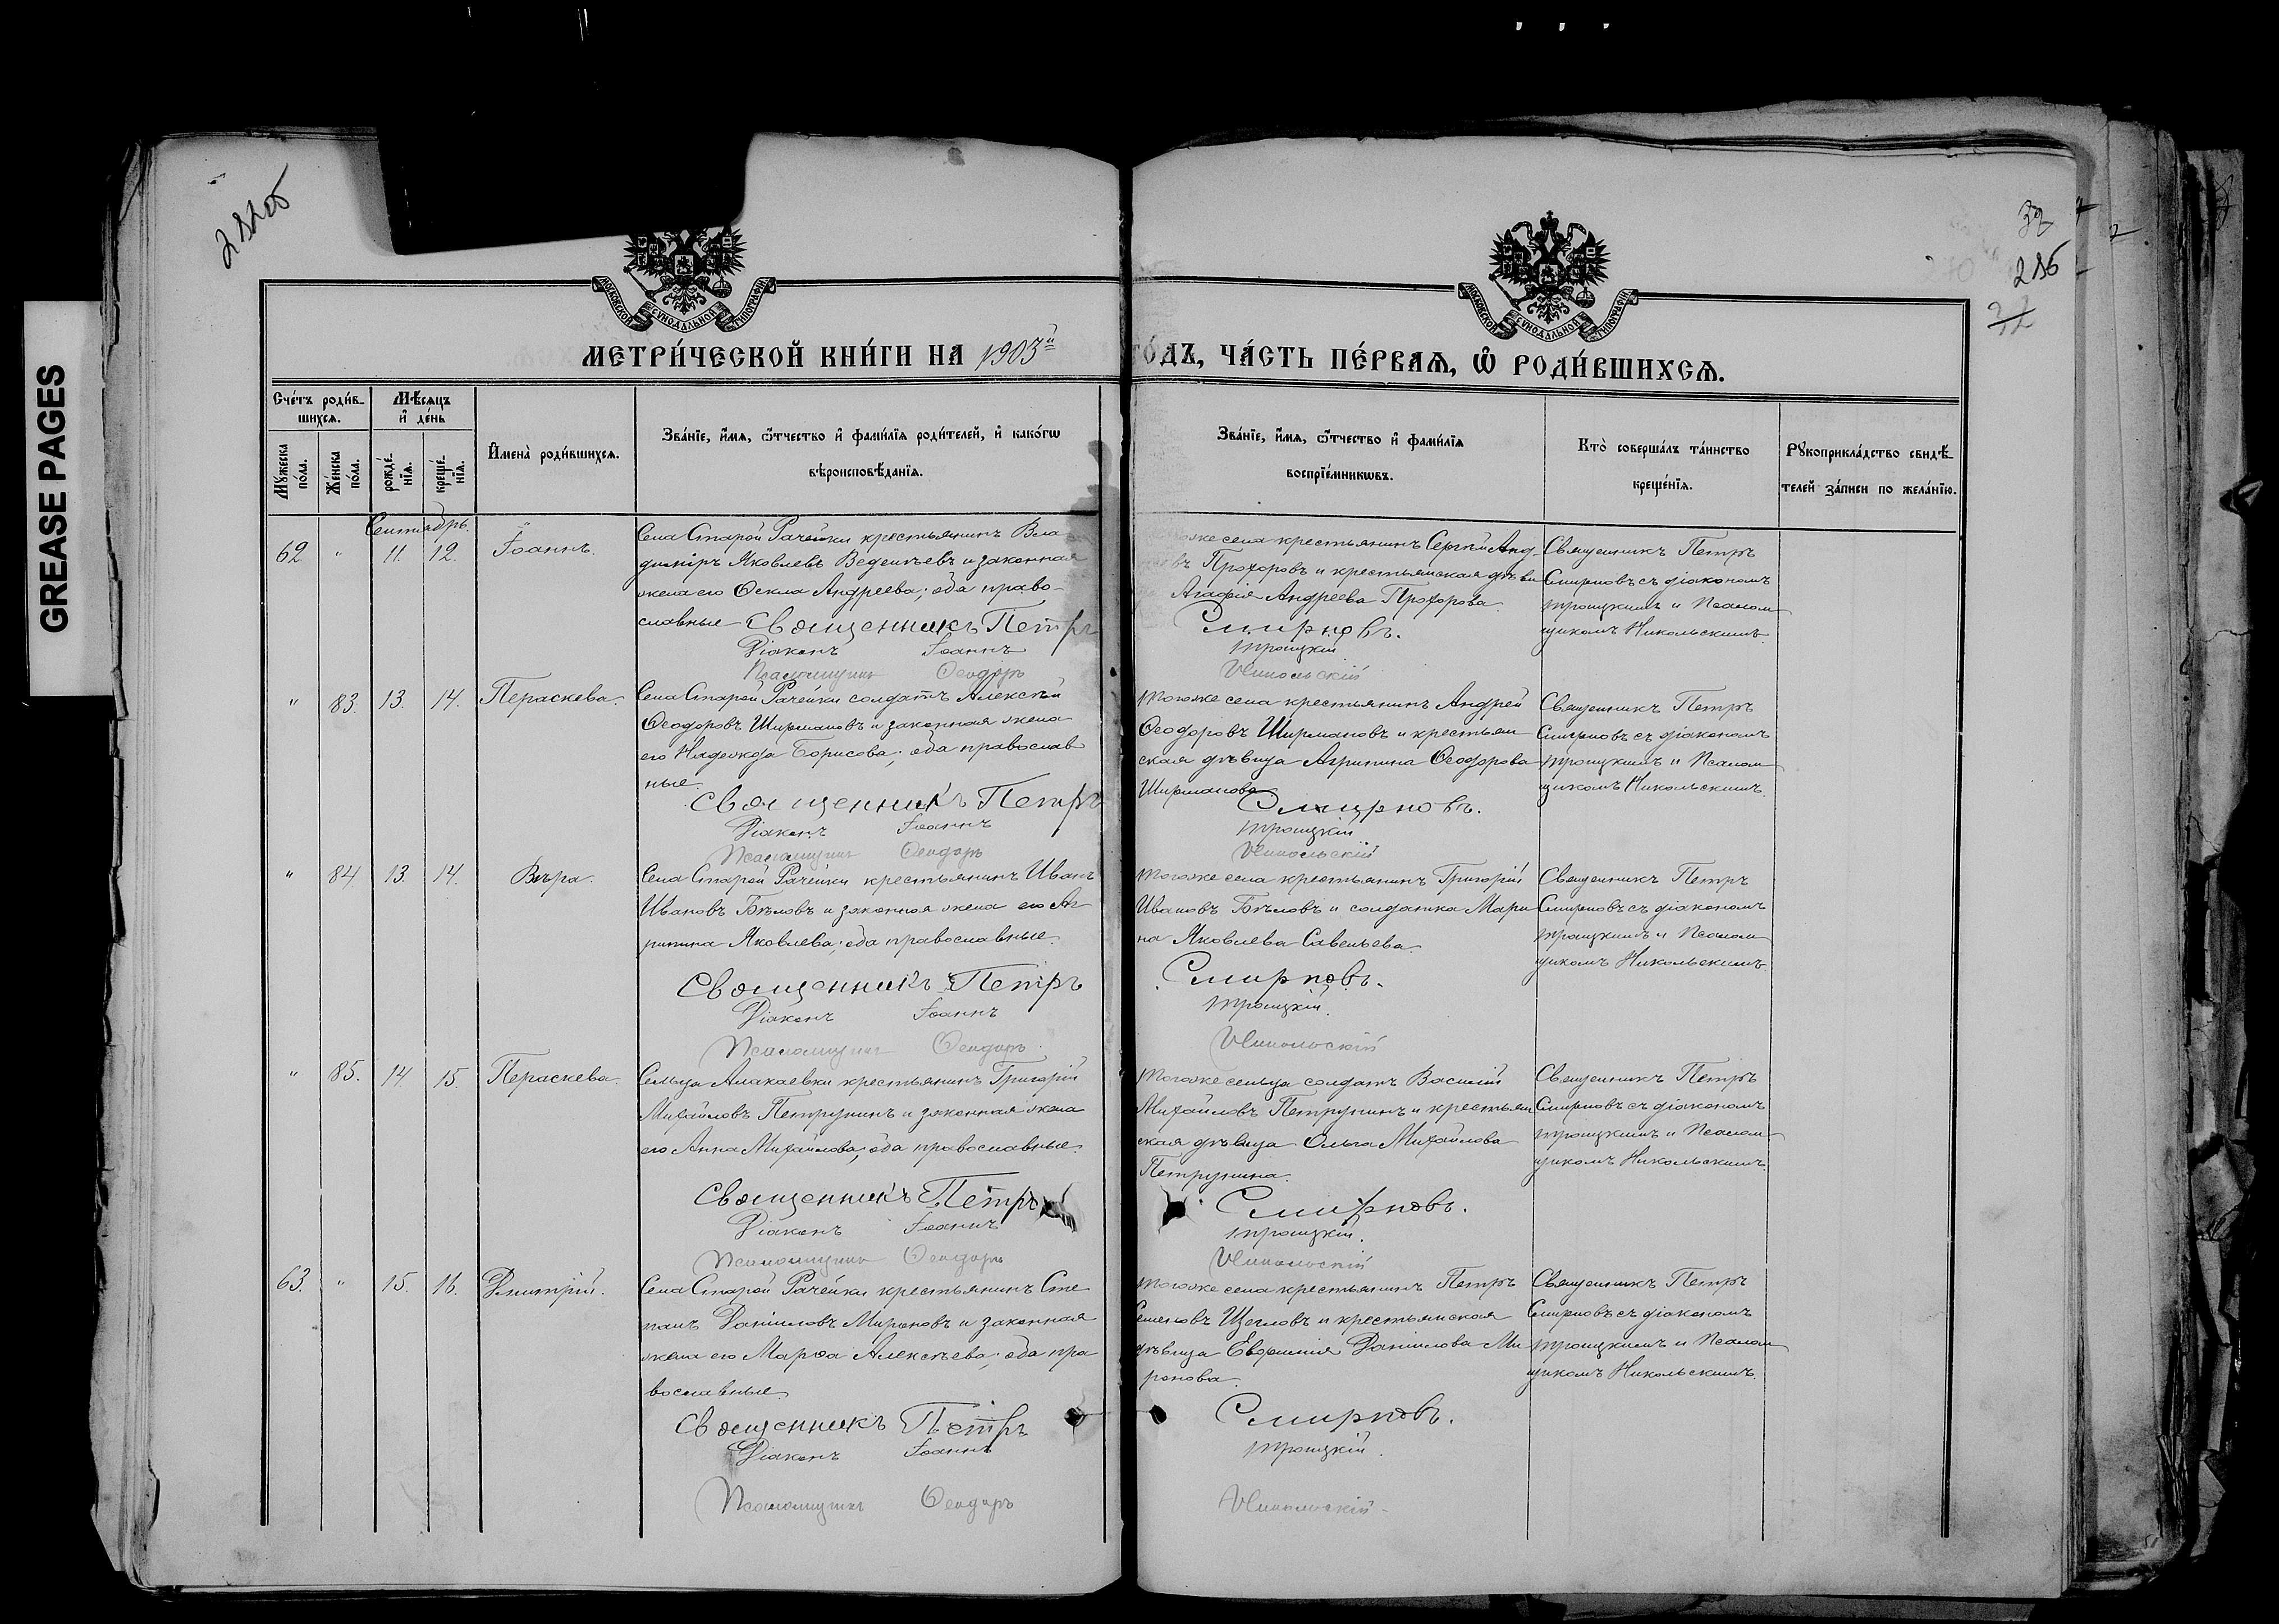 GREASE PAGES
32
МОСКОВСКОЙ СѴНОДАЛЬНОЙ ТИПОГРАФІИ
МОСКОВСКОЙ СѴНОДАЛЬНОЙ ТИПОГРАФІИ
МЕТРИ́ЧЕСКОЙ КНИ́ГИ НА 1903й
ГО́ДЪ, ЧА́СТЬ ПЕ́РВАѦ, Ѡ҆ РОДИ́ВШИХСѦ.
Сче́тъ роди́в-
шихсѧ.
Мѣ́сѧцъ
и҆ де́нь
Мꙋ́жеска по́ла.
Же́нска по́ла.
рожде́-нїѧ.
креще́-нїѧ.
И҆мена̀ роди́вшихсѧ.
Зва́нїе, и҆́мѧ, ѻ҆́тчество и҆ фами́лїѧ роди́телей, и҆ како́гѡ
вѣроисповѣ́данїѧ.
Зва́нїе, и҆́мѧ, ѻ҆́тчество и҆ фами́лїѧ
воспрїе́мникѡвъ.
Кто̀ соверша́лъ та́инство
креще́нїѧ.
Рꙋкоприкла́дство свидѣ́-
телей за́писи по жела́нїю.
Сентябрь.
62. " 11. 12. Іоаннъ.
Села Старой Рачейки крестьянинъ Вла
диміръ Яковлевъ Веденѣевъ и законная
жена его Ѳекла Андреева; оба право-
славные
Священникъ Петръ
Діаконъ Іоаннъ
Псаломщикъ Ѳеодоръ
села крестьянинъ Сергѣй Анд-
Прохоровъ и крестьянская дѣви
Агафія Андреева Прохорова.
Смирновъ.
Троицкій
Никольскій
Священникъ Петръ
Смирновъ съ діакономъ
Троицкимъ и Псалом
щикомъ Никольскимъ.
" 83. 13. 14. Параскева.
Села Старой Рачейки солдатъ Алексѣй
Ѳеодоровъ Ширмановъ и законная жена
его Надежда Борисова; оба православ
ные.
Священникъ Петръ
Діаконъ Іоаннъ
Псаломщикъ Ѳеодоръ
Тогоже села крестьянинъ Андрей
Ѳеодоровъ Ширмановъ и крестьян
ская дѣвица Агрипина Ѳеодорова
Ширманова
Смирновъ.
Троицкій
Никольскій
Священникъ Петръ
Смирновъ съ діакономъ
Троицкимъ и Псалом
щикомъ Никольскимъ.
" 84 13. 14. Вѣра.
Села Старой Рачейки крестьянинъ Иванъ
Ивановъ Бѣловъ и законная жена его Аг
рипина Яковлева; оба православные.
Священникъ Петръ
Діаконъ Іоаннъ
Псаломщикъ Ѳеодоръ.
Тогоже села крестьянинъ Григорій
Ивановъ Бѣловъ и солдатка Мари
на Яковлева Савельева.
Смирновъ.
Троицкій.
Никольскій
Священникъ Петръ
Смирновъ съ діакономъ
Троицкимъ и Псалом
щикомъ Никольскимъ.
" 85. 14. 15. Параскева.
Сельца Алакаевки крестьянинъ Григорій
Михайловъ Петрунинъ и законная жена
его Анна Михайлова; оба православные.
Священникъ Петръ
Діаконъ Іоаннъ
Псаломщикъ Ѳеодоръ
Тогоже сельца солдатъ Василій
Михайловъ Петрунинъ и крестьян
ская дѣвица Ольга Михайлова
Петрунина.
Смирновъ.
Троицкій.
Никольскій
Священникъ Петръ
Смирновъ съ діакономъ
Троицкимъ и Псалом
щикомъ Никольскимъ
63. " 15. 16. Димитрій.
Села Старой Рачейки крестьянинъ Сте
панъ Даніиловъ Мироновъ и законная
жена его Марѳа Алексѣева; оба пра
вославные.
Священникъ Петръ
Діаконъ Іоаннъ
Псаломщикъ Ѳеодоръ
Тогоже села крестьянинъ Петръ
Семеновъ Щегловъ и крестьянская
дѣвица Евфимія Даніилова Ми
ронова.
Смирновъ.
Троицкій.
Никольскій
Священникъ Петръ
Смирновъ съ діакономъ
Троицкимъ и Псалом
щикомъ Никольскимъ.